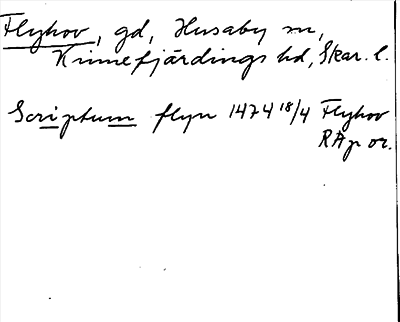 Flyhov, gd, Husaby sn,
Kinnefjärdings hd, Skar. l.
Scriptum flyu 1474 18/4 Flyhov
RAp or.